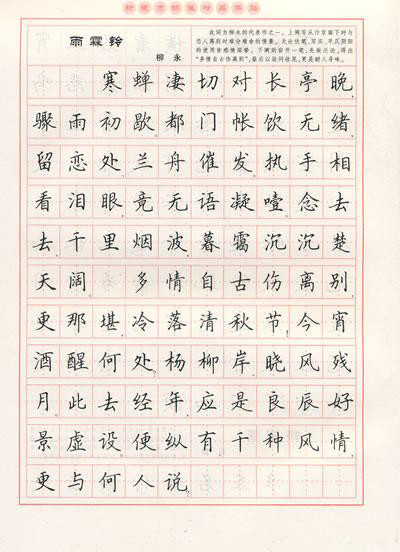 雨霖铃
柳永
此词为柳永的代表作之一。上阕写从汴京南下时与
恋人离别时难分难舍的情景。无论伏笔、写实、平仄阴阳
的使用皆感情深挚。下阕则宕开一笔,先做泛论,得出
“多情自古伤离别”,最后以设问收尾,更是耐人寻味。
寒蝉凄切,对长亭晚,
骤雨初歇。都门帐饮无绪,
留恋处兰舟催发。执手相
看泪眼,竟无语凝噎。念去
去千里烟波,暮霭沉沉楚
天阔。多情自古伤离别,
更那堪,冷落清秋节!今宵
酒醒何处?杨柳岸,晓风残
月。此去经年,应是良辰好
景虚设。便纵有千种风情,
更与何人说?